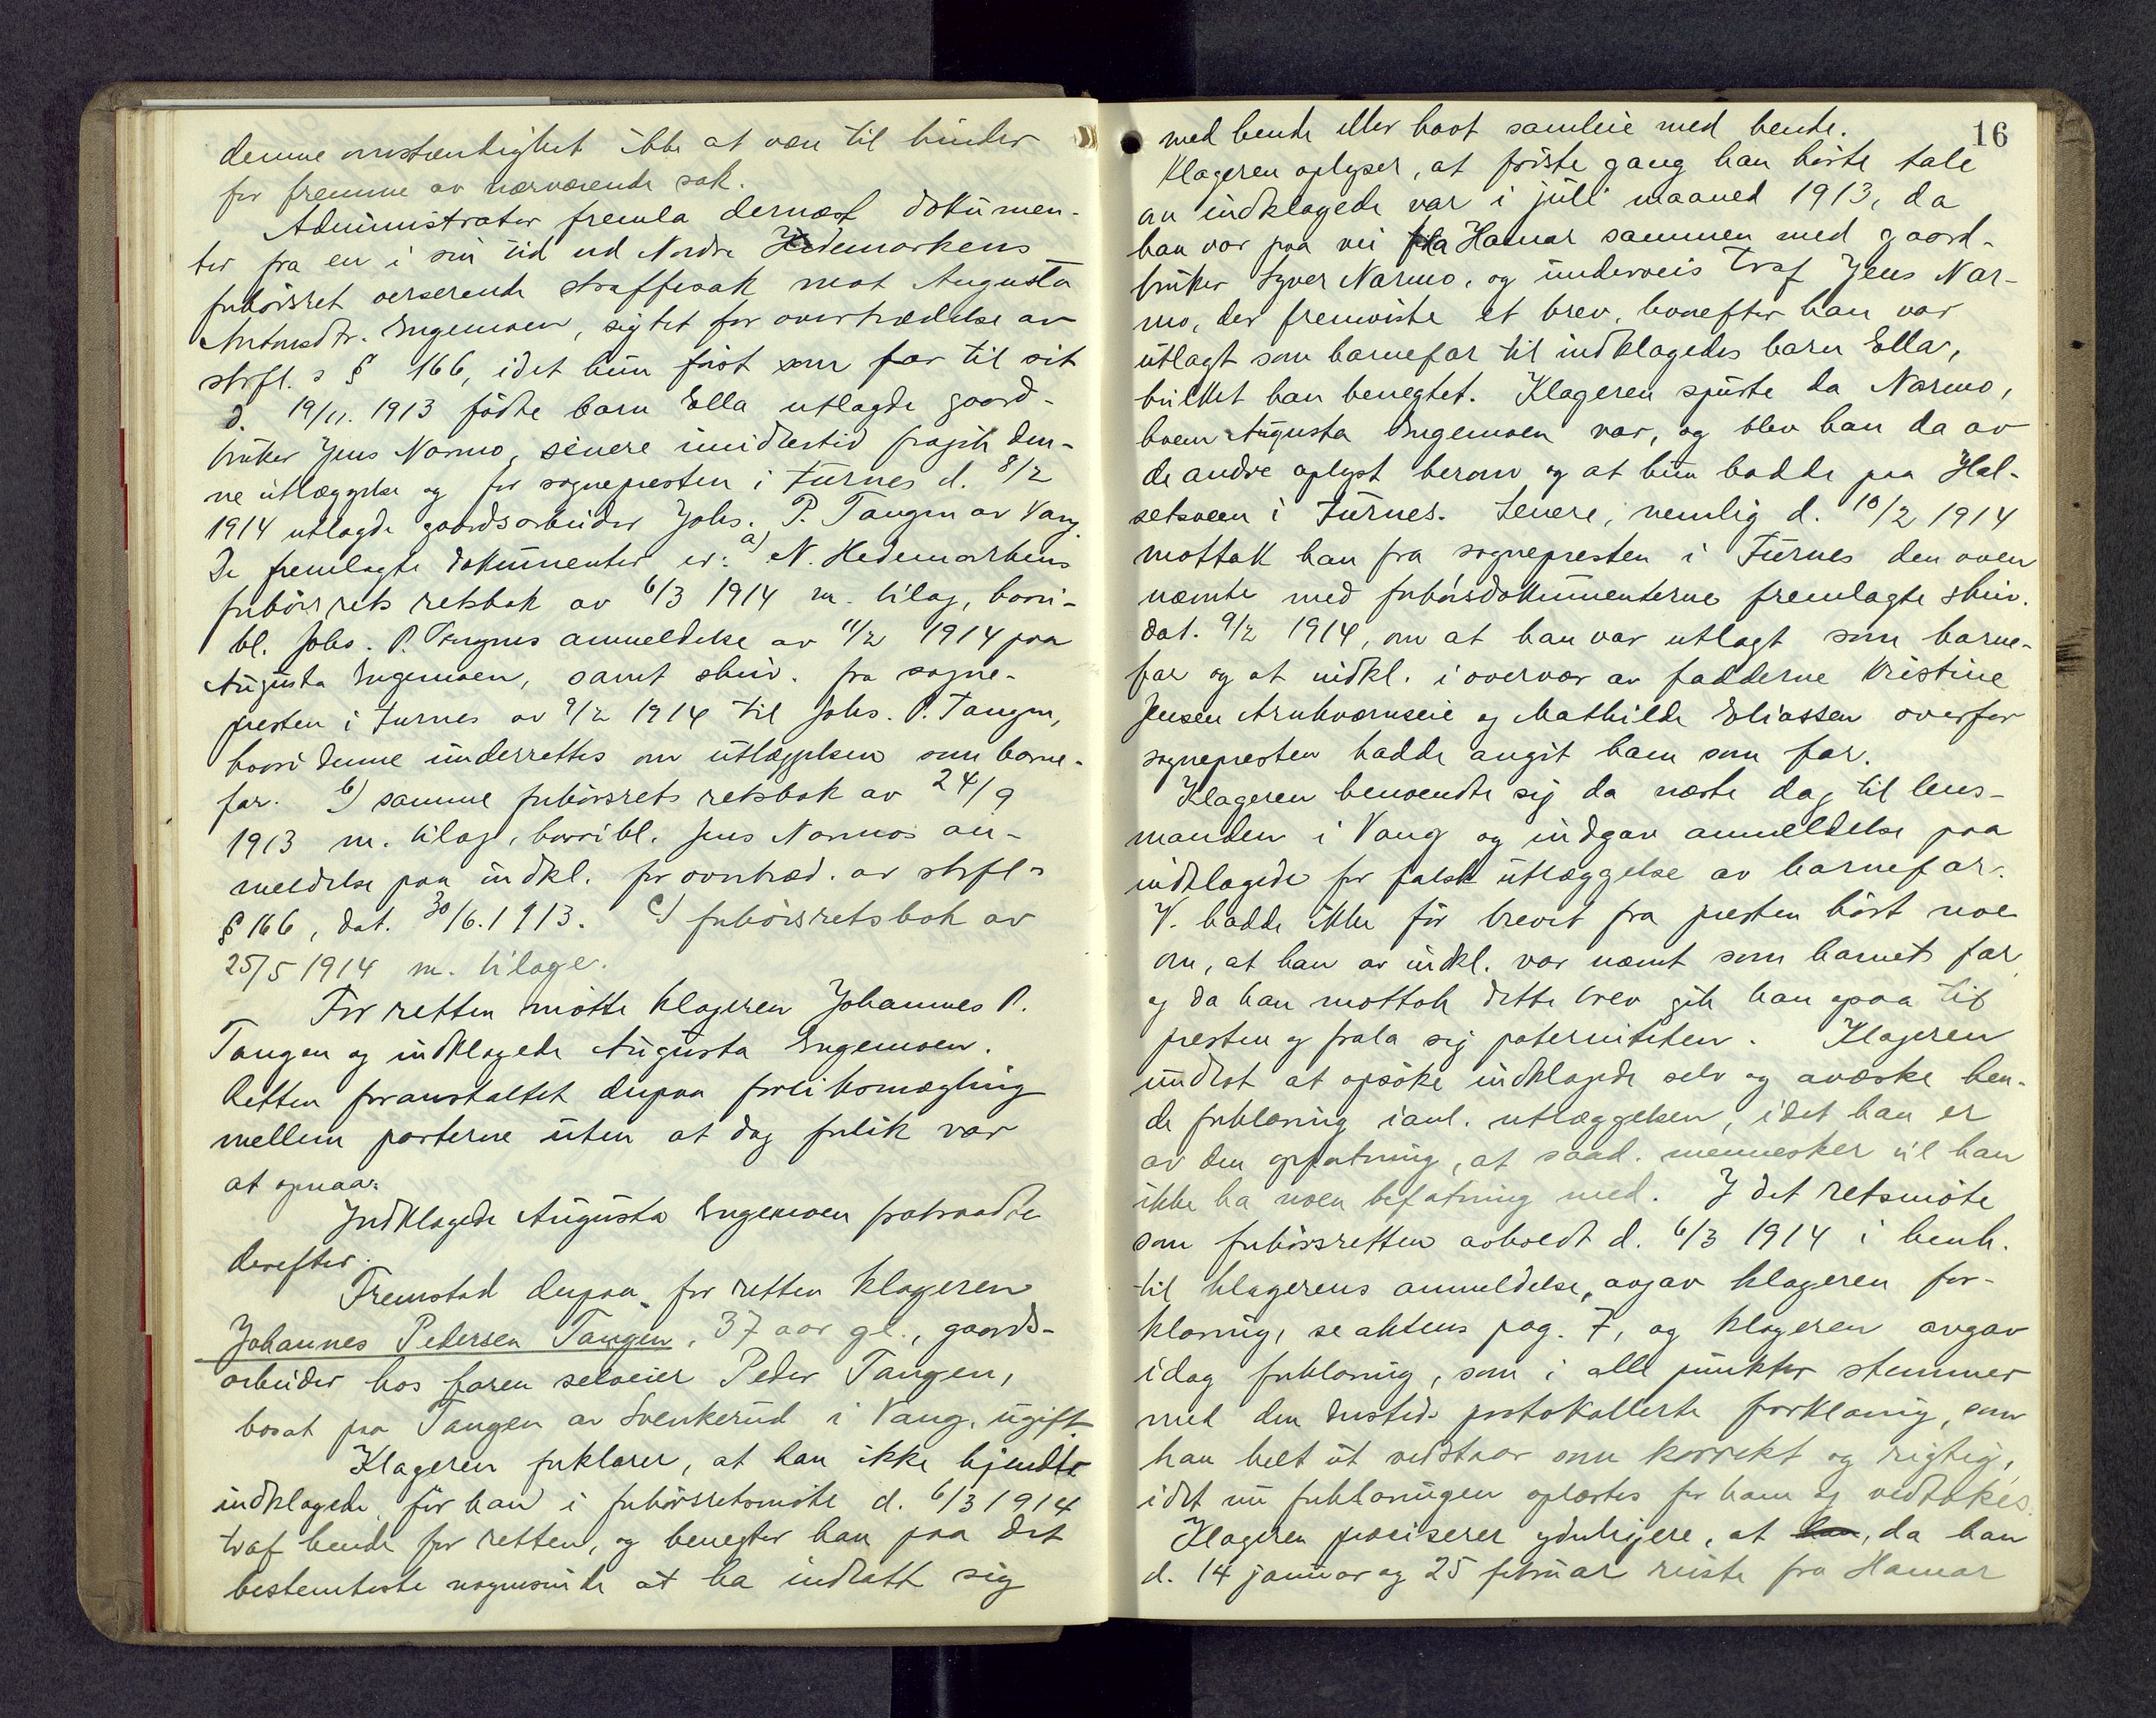 denne omstændighet ikke at være til hinder
for fremme av nærværende sak.
Administrator fremla dernæst dokumen-
ter fra en i sin tid ved Nordre Hedemarkens
forhörsret verserende straffesak mot Augusta
Antonsdtr. Engemoen, sigtet for overtrædelse av
strfl.s § 166, idet hun först som far til sit
d. 19/11. 1913 födte barn Ella utlagde gaard-
bruker Jens Narmo, senere imidlertid fragik den-
ne utlæggelse og for sognepresten i Furnes d. 8/2
1914 utlagde gaardsarbeider Johs. P. Tangen av Vang.
De fremlagte dokumenter er: a) N. Hedemarkens
forhörsrets retsbok av 6/3 1914 m. bilag, hvori-
bl. Johs. P. Tangens anmeldelse av 11/2 1914 paa
Augusta Engemoen, samt skriv. fra sogne-
presten i Furnes av 9/2 1914 til Johs. P. Tangen,
hvori denne underrettes om utlæggelsen som barne-
far. b) samme forhörsrets retsbok av 24/9
1913 m. bilag, hvoribl. Jens Narmos an-
meldelse paa indkl. for overtræd. av strfl.s
§ 166, dat. 30/6. 1913. c) forhörsretsbok av
25/5 1914 m. bilage.
For retten mötte klageren Johannes P.
Tangen og indklagede Augusta Engemoen.
Retten foranstaltet derpaa forliksmægling
mellem parterne uten at dog forlik var
at opnaa.
Indklagede Augusta Engemoen fratraadte
derefter.
Fremstod derpaa for retten klageren
Johannes Pedersen Tangen, 37 aar gl., gaards-
arbeider hos faren selveier Peder Tangen,
bosat paa Tangen av Svenkerud i Vang, ugift.
Klageren forklarer, at han ikke kjendte
indklagede, för han i forhörsretsmöte d. 6/3 1914
traf hende for retten, og benegter han paa det
bestemteste nogensinde at ha indlatt sig
16
med hende eller havt samleie med hende.
Klageren oplyser, at förste gang han hörte tale
om indklagede var i juli maaned 1913, da
han var paa vei fra Hamar sammen med gaard-
bruker Syver Narmo, og underveis traf Jens Nar-
mo, der fremviste et brev, hvorefter han var
utlagt som barnefar til indklagedes barn Ella,
hvilket han benegtet. Klageren spurte da Narmo,
hvem Augusta Engemoen var, og blev han da av
de andre oplyst herom og at hun bodde paa Hal-
setsveen i Furnes. Senere, nemlig d. 10/2 1914
mottok han fra sognepresten i Furnes den oven
nævnte med forhörsdokumenterne fremlagte skriv.
dat. 9/2 1914, om at han var utlagt som barne-
far og at indkl. i overvær av fadderne Kristine
Jensen Arnkværnseie og Mathilde Eliassen overfor
sognepresten hadde angit ham som far.
Klageren henvendte sig da næste dag til lens-
manden i Vang og indgav anmeldelse paa
indklagede for falsk utlæggelse av barnefar.
K. hadde ikke för brevet fra presten hört noe
om, at han av indkl. var nævnt som barnets far
og da han mottok dette brev gik han ogsaa til
presten og frala sig paterniteten. Klageren
undlot at opsöke indklagede selv og avæske hen-
de forklaring i anl. utlæggelsen, idet han er
av den opfatning, at saad. mennesker vil han
ikke ha noen befatning med. I det retsmöte
som forhörsretten avholdt d. 6/3 1914 i henh.
til klagerens anmeldelse, avgav klageren for-
klaring, se aktens pag. 7, og klageren avgav
idag forklaring, som i alle punkter stemmer
med den dersteds protokollerte forklaring, som
han helt ut vedstaar som korrekt og rigtig,
idet nu forklaringen oplæstes for ham og vedtokes.
Klageren præciserer yderligere, at han, da han
d. 14 januar og 25 februar reiste fra Hamar